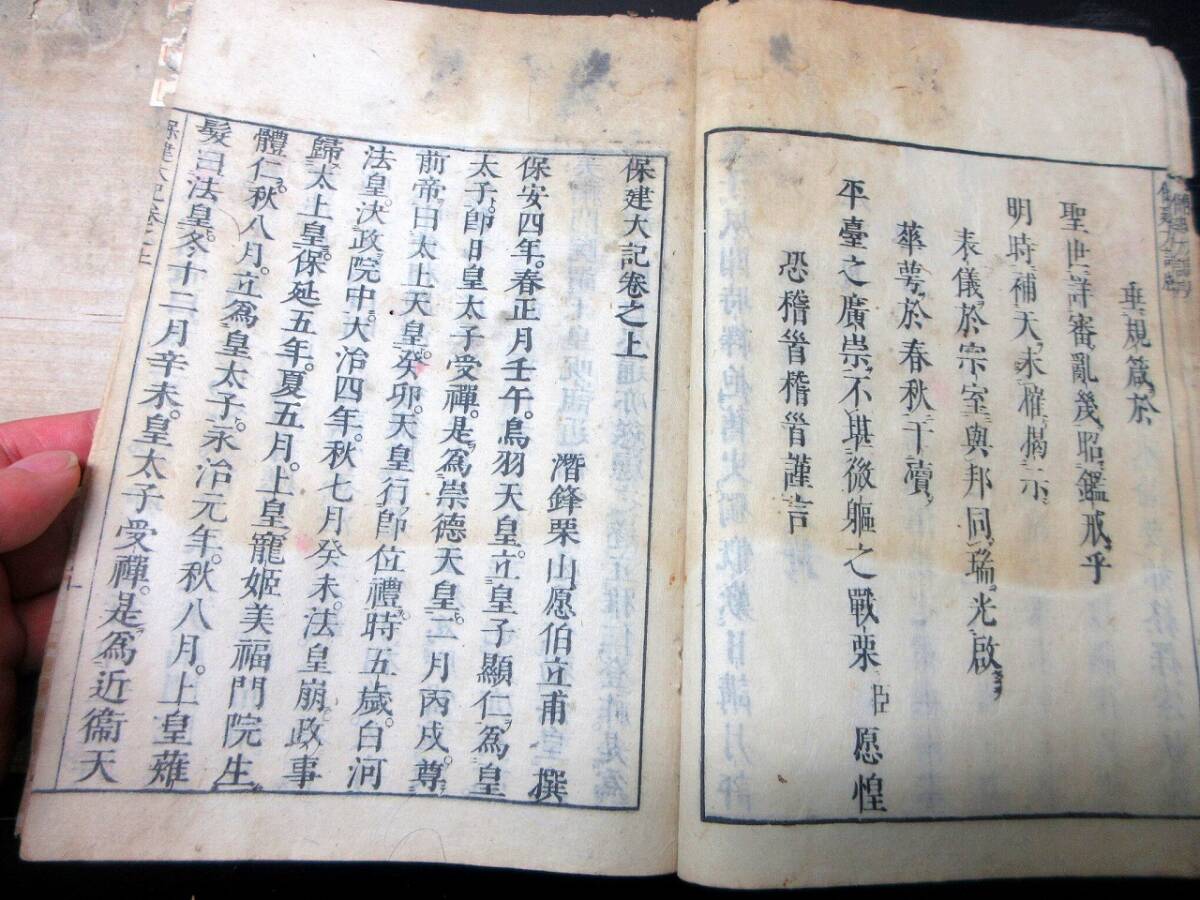 垂規箴於
聖世詳審亂幾昭鑑戒乎
明時補天未榷揭示
表儀於宗室與邦同瑞光啟
華萼於春秋干瀆
平臺之廣崇不堪微軀之戰栗臣愿惶
恐稽首稽首謹言
保建大記卷之上
潛鋒栗山愿伯立甫 撰
保安四年。春正月壬午。鳥羽天皇。立皇子顯仁。為皇
太子。卽日皇太子受禪。是。為崇德天皇。二月丙戌。尊
前帝。曰太上天皇。癸卯。天皇行。卽位禮。時五歲。白河
法皇。決政院中。大治四年。秋七月癸未。法皇崩。政事
歸。太上皇。保延五年。夏五月。上皇寵姬美福門院生
體仁。秋八月。立為皇太子。永治元年。秋八月。上皇薙
髮曰法皇。冬十二月辛未。皇太子受禪。是為近衞天
保建大記卷之上